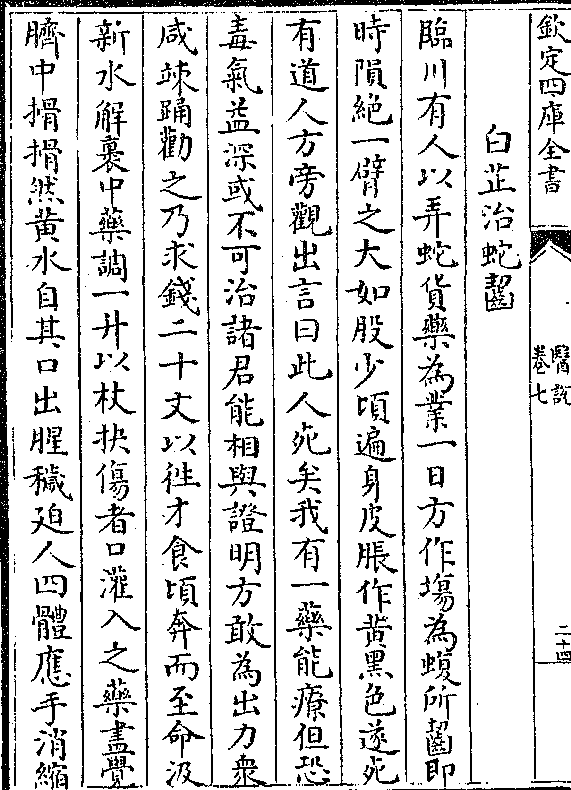 欽定四庫全書
醫說
卷七
二十四
白芷治蛇齧
臨川有人以弄蛇貨藥為業一日方作塲為蝮所齧即
時隕絕一臂之大如股少頃遍身皮脹作黃黑色遂死
有道人方旁觀出言曰此人死矣我有一藥能療但恐
毒氣益深或不可治諸君能相與證明方敢為出力衆
咸竦踊勸之乃求錢二十文以徃才食頃奔而至命汲
新水解裹中藥調一升以杖抉傷者口灌入之藥盡覺
臍中搰搰然黃水自其口出腥穢廹人四體應手消縮